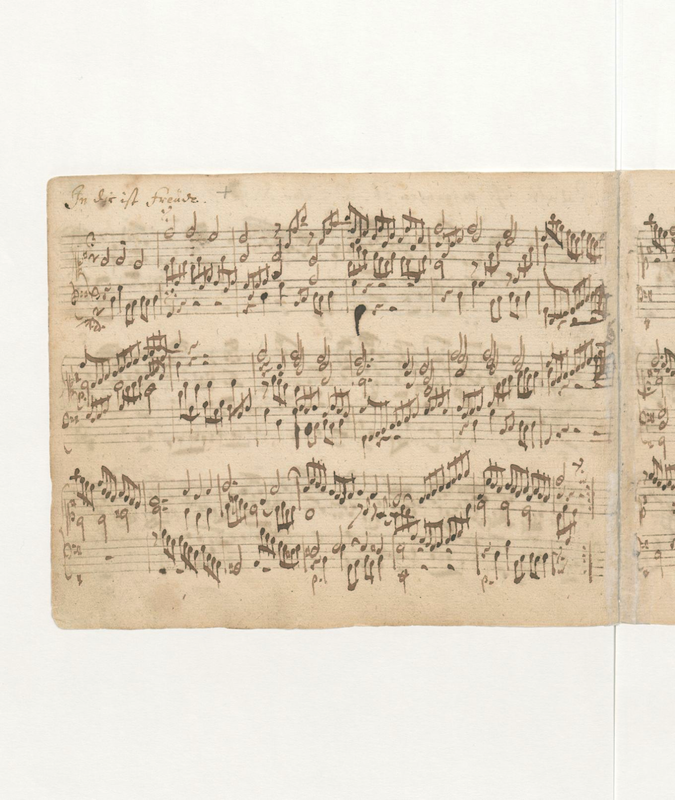 In dir ist Freude.